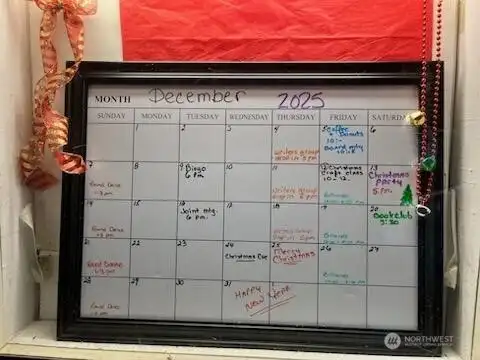 MONTH December 2025
SUNDAY MONDAY TUESDAY WEDNESDAY THURSDAY FRIDAY SATURDAY
1 2 3 4 5 6
writers group
5 pm
Coffee
+ Donuts
10:-
7 8 9 10 11 12 13
Round Dance
1-3 pm
Bingo
6 pm
writers group
5 pm
Christmas
craft class
10-12
Christmas
Party
5 pm
14 15 16 18 19 20
Round Dance
1-3 pm
Joint mtg.
6 pm
5 pm
Book club
3:30
21 22 23 24 25 26 27
Round Dance
1-3 pm
Christmas Eve
Merry
Christmas
28 29 30 31
Round Dance
HAPPY
NEW YEAR
NORTHWEST